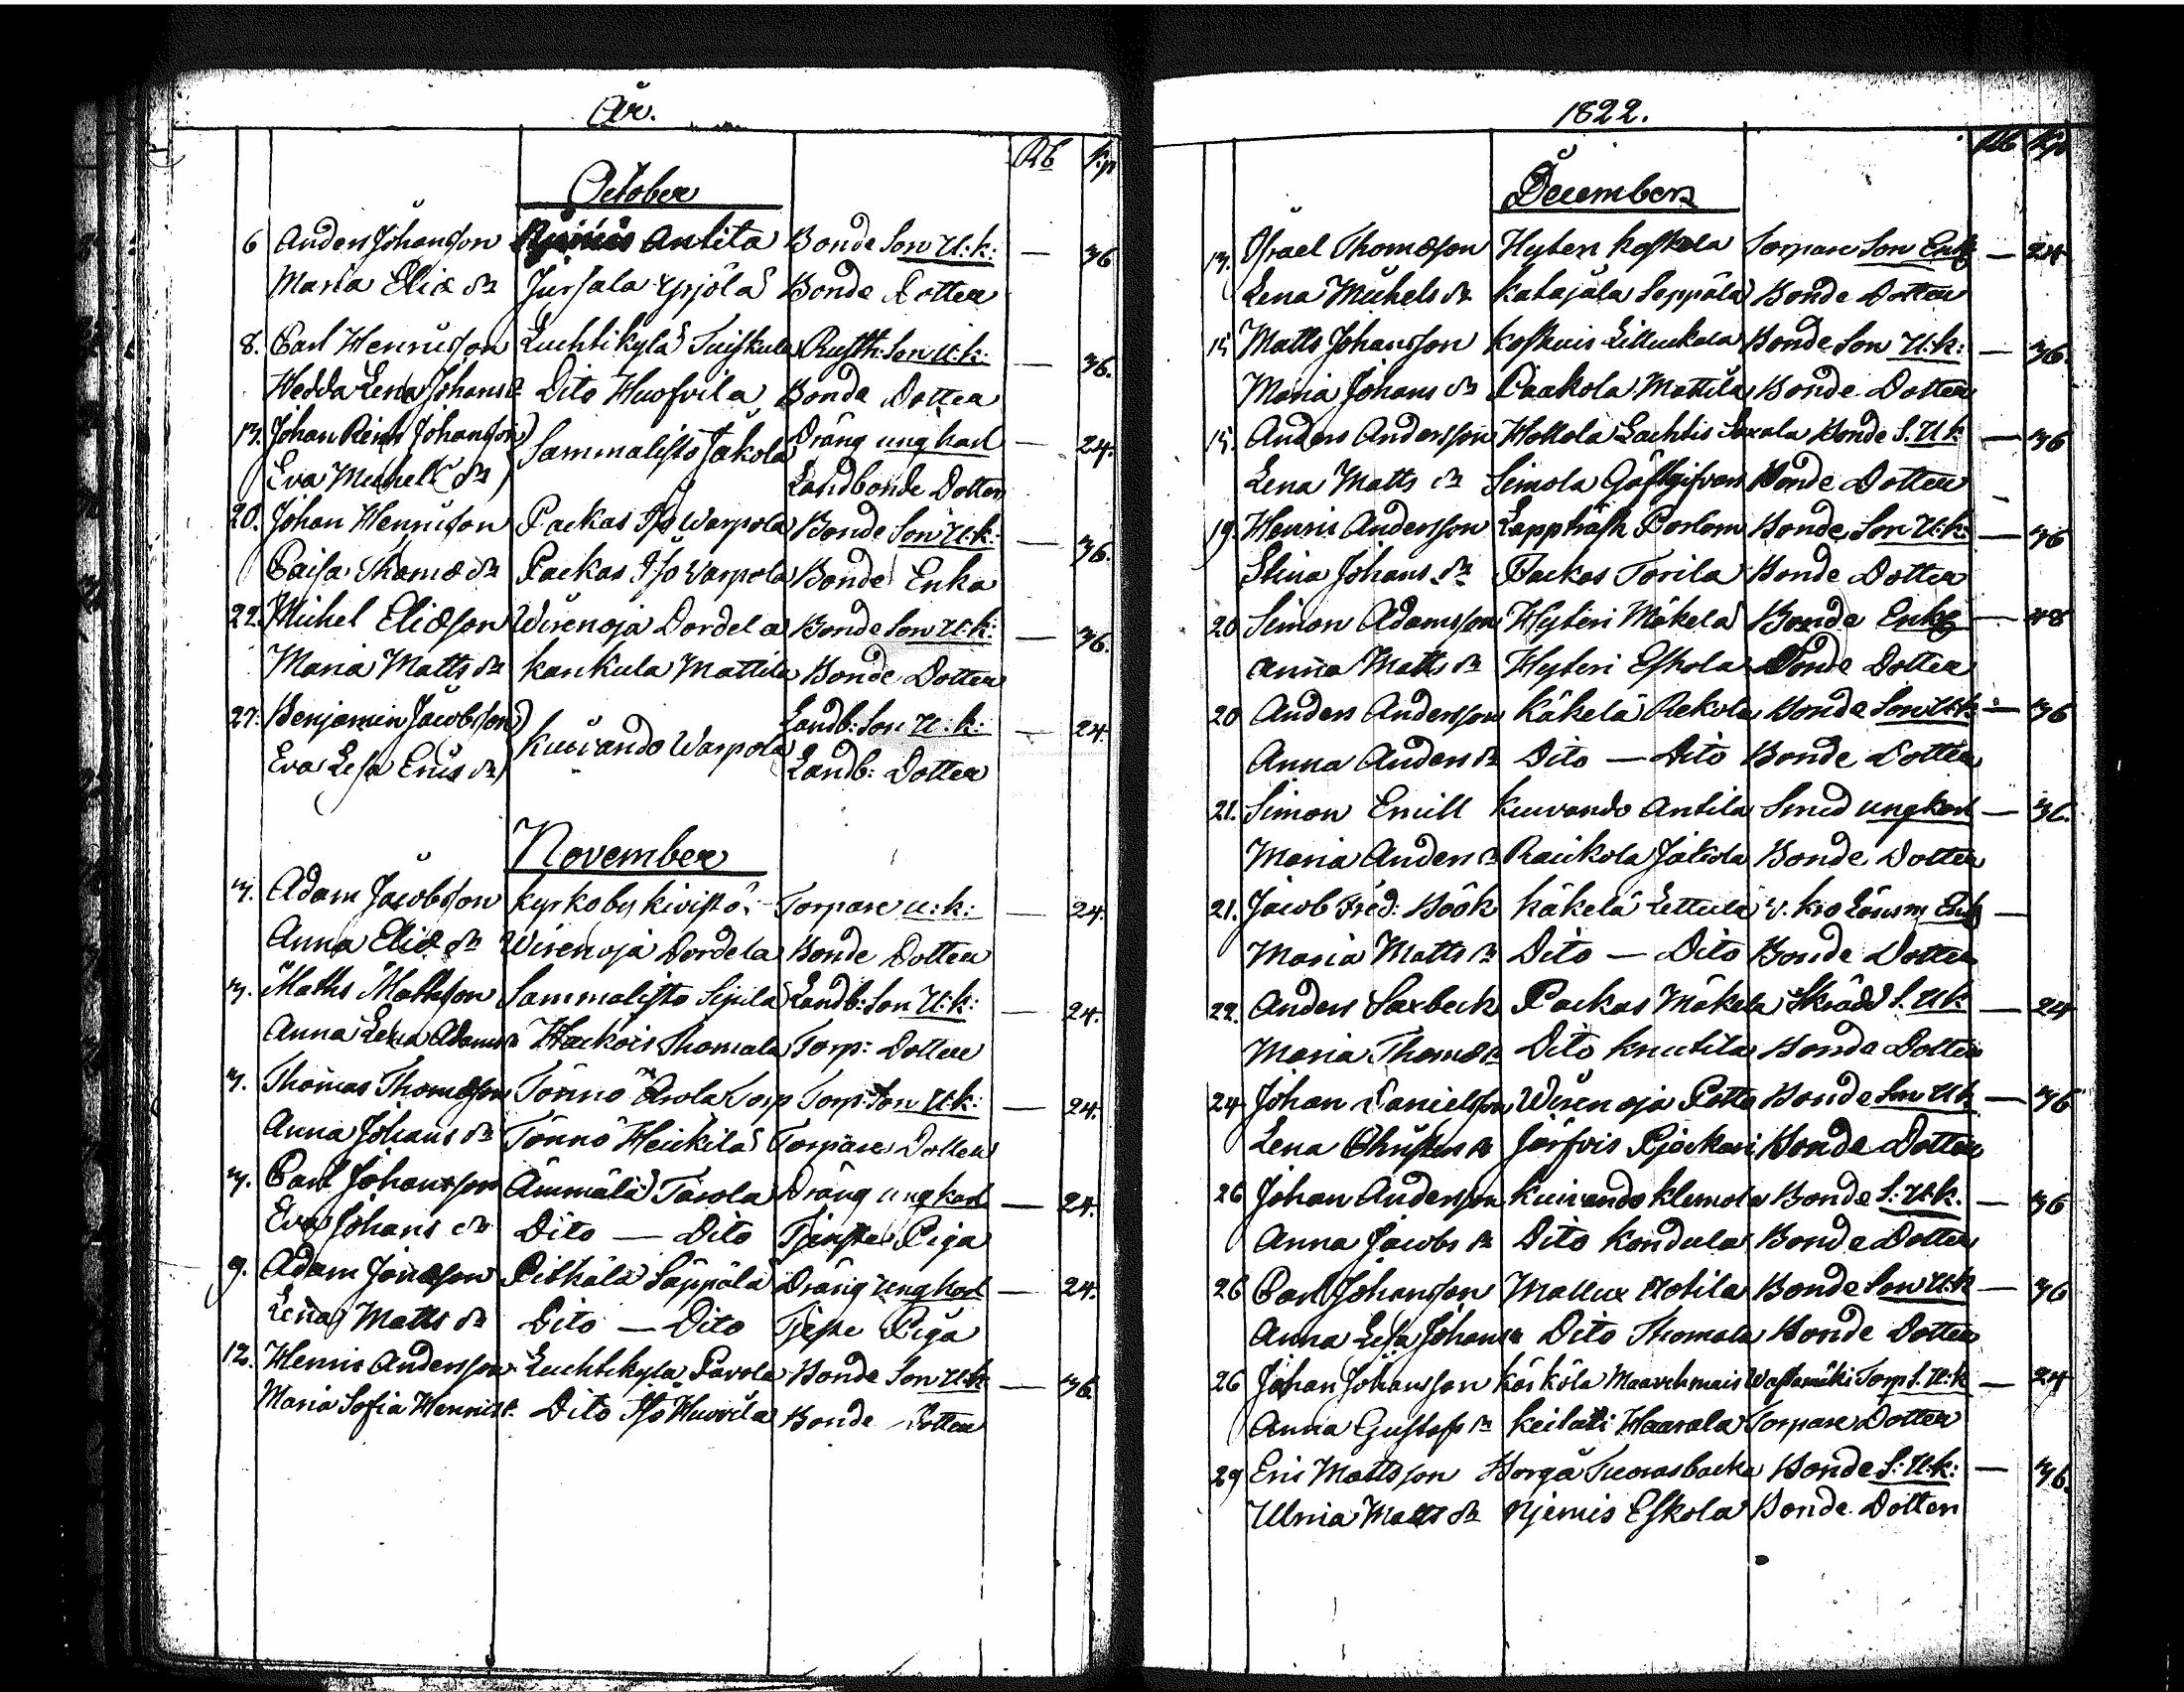 År.
Rb Kp
October
6 Anders Johansson Antila Bonde Son U:k: — 36
Maria Eliæ dr Jursala Ypjölä Bonde Dotter
8. Carl Henricsson Luchtikylä Tuiskula Rusth: Son U:k: — 36.
Hedda Lena Johans dr Dito Huofvila Bonde Dotter
13. Johan Reinh Johansson Sammalisto Jakola Dräng ung karl — 24.
Eva Michels dr Landbonde Dotter
20. Johan Henricson Packas Iso Warpola Bonde Son U:k: — 36.
Caisa Thomæ dr Packas Iso Warpola Bonde Enka
22. Michel Eliæson Wirenoja Dordela Bonde Son U:k: — 36.
Maria Matts dr Kankula Mattila Bonde Dotter
27. Benjamin Jacobsson Kuivando Warpola Landb: Son U:k: — 24.
Eva Lisa Erics dr Landb: Dotter
November
3. Adam Jacobsson Kyrkoby Kivistö Torpare U:k: — 24.
Anna Eliæ dr Wirenoja Dordela Bonde Dotter
3. Maths Mathsson Sammalisto Sipilä Landb: Son U:k: — 24.
Anna Lena Adams dr Hackois Thomala Torp: Dotter
3. Thomas Thomæson Tönnö Arola Torp Torp: Son U:k: — 24.
Anna Johans dr Tönnö Heickilä Torpare Dotter
3. Carl Johansson Ämmälä Tarola Dräng ung karl — 24.
Eva Johans dr Dito — Dito Tjenste Piga
9. Adam Jönæson Pitkälä Säppälä Dräng ung karl — 24.
Lena Matts dr Dito — Dito Tjeste Piga
12. Henric Andersson Luchtikyla Pavola Bonde Son U:k — 36.
Maria Sofia Henrics dr Dito Iso Huovila Bonde Dotter
1822.
Rb Kp
December
13. Israel Thomæson Hyteri Koskela Torpare Son Enkl — 24
Lena Michels dr Katajala Seppälä Bonde Dotter
15 Matts Johansson Koskuis Lilluckala Bonde Son U:k: — 36.
Maria Johans dr Paakola Mattila Bonde Dotter
15. Anders Andersson Hollola Lachtis Saxala Bonde S. U:k: — 36
Lena Matts dr Simola Gästgifvars Bonde Dotter
19. Henric Andersson Lappträsk Porlom Bonde Son U:k: — 36
Stina Johans dr Packas Torila Bonde Dotter
20 Simon Adamsson Hyteri Mäkelä Bonde Enkl — 48
Anna Matts dr Hyteri Eskola Bonde Dotter
20 Anders Andersson Käkelä Rekola Bonde Son U:k: — 36
Anna Anders dr Dito — Dito Bonde Dotter
21. Simon Emill Kuivando Antila Smed ung karl — 36.
Maria Anders dr Raikola Jakola Bonde Dotter
21. Jacob Fred: Höök Käkelä Lettula v. Kro Länsm Enkl —
Maria Matts dr Dito — Dito Bonde Dotter
22. Anders Saxbeck Packas Mäkelä Skrädd S. U:k — 24
Maria Thomæ dr Dito Knutila Bonde Dotter
24 Johan Danielsson Wirenoja Potto Bonde Son U:k — 36
Lena Christers dr Järfvis Pjäckari Bonde Dotter
26 Johan Andersson Kuivando Klemola Bonde S: U:k. — 36
Anna Jacobs dr Dito Kondula Bonde Dotter
26 Carl Johansson Mallux Hotila Bonde Son U:k — 36
Anna Lisa Johans dr Dito Thomala Bonde Dotter
26 Johan Johansson Kärkölä Maavehmais Wastamäki Torp S. U:k — 24
Anna Gustafs dr Keituti Haarala Torpare Dotter
29 Eric Mattsson Borgå Tuorasbacka Bonde S: U:k: — 36.
Ulrica Matts dr Njemis Eskola Bonde Dotter